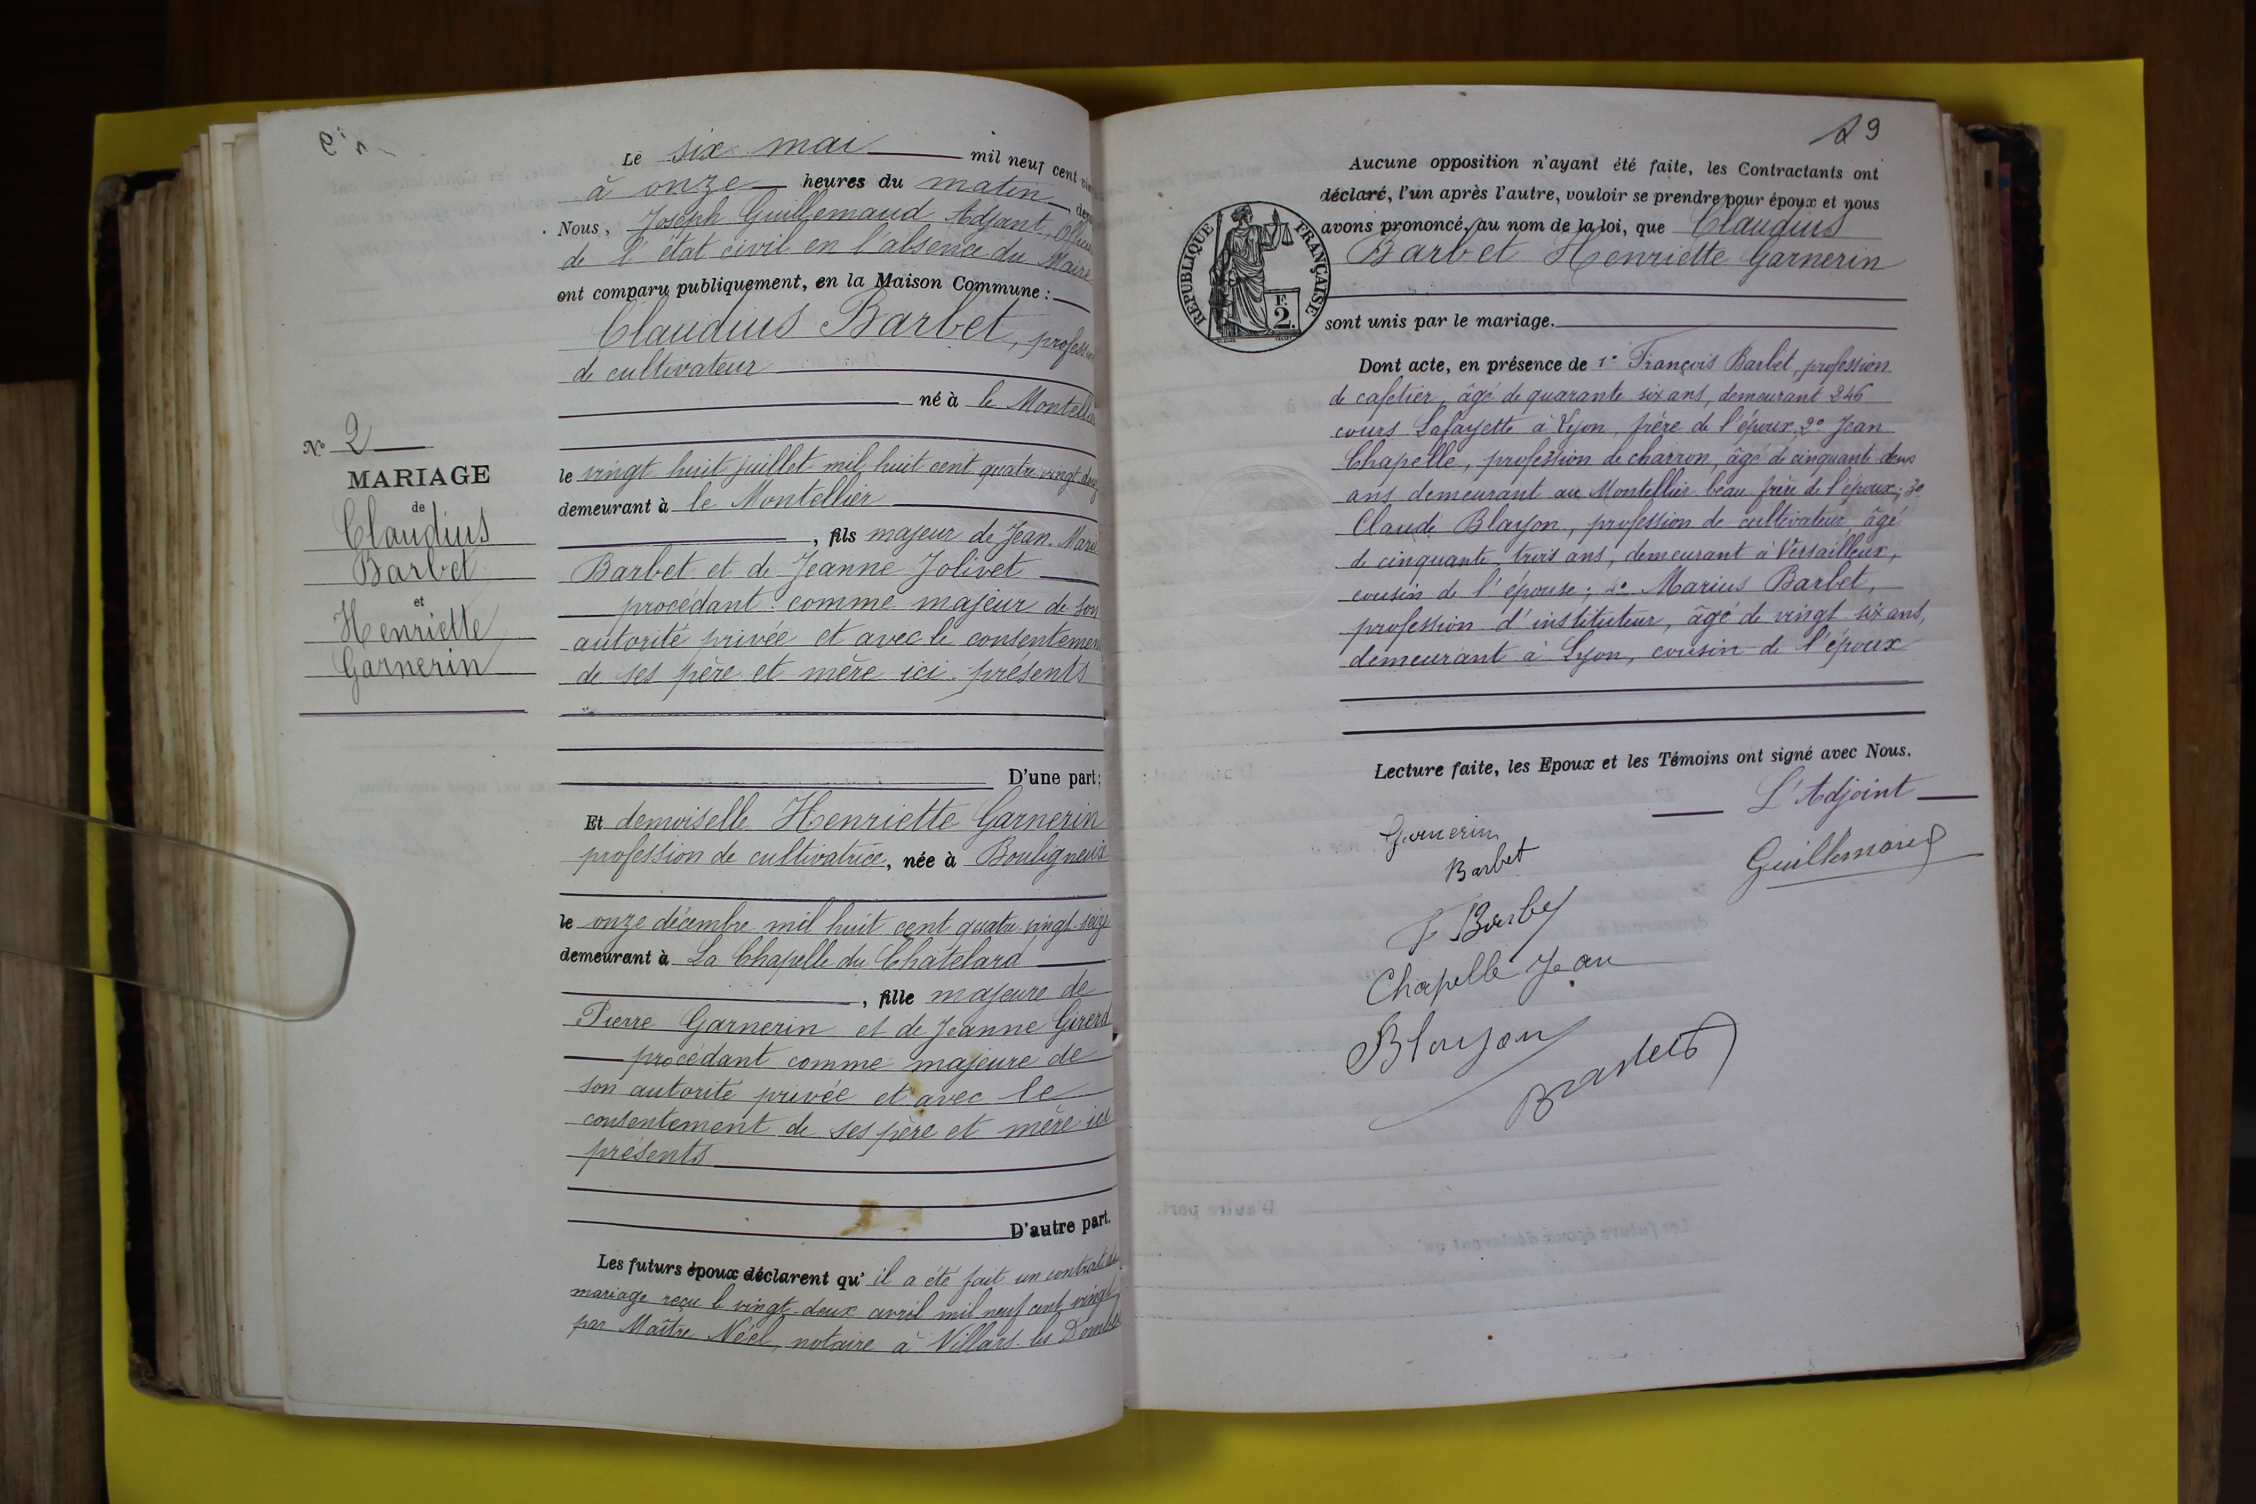 Le six mai mil neuf cent
à onze heures du matin,
Nous, Joseph Guillemaud Adjoint,
de l'état civil en l'absence du Maire
ont comparu publiquement, en la Maison Commune :
Claudius Barbet, profession
de cultivateur
né à le Montellier
le vingt huit juillet mil huit cent quatre vingt
demeurant à le Montellier
, fils majeur de Jean Marie
Barbet et de Jeanne Jolivet
procédant comme majeur de son
autorité privée et avec le consentement
de ses père et mère ici présents
D'une part;
Et demoiselle Henriette Garnerin
profession de cultivatrice, née à Bouligneux
le onze décembre mil huit cent quatre vingt seize
demeurant à La Chapelle du Châtelard
, fille majeure de
Pierre Garnerin et de Jeanne Girerd
procédant comme majeure de
son autorité privée et avec le
consentement de ses père et mère ici
présents
D'autre part.
Les futurs époux déclarent qu' il a été fait un contrat de
mariage reçu le vingt-deux avril mil neuf cent vingt
par Maître Néel, notaire à Villars les Dombes
N° 2
MARIAGE
de
Claudius
Barbet
et
Henriette
Garnerin
29
Aucune opposition n'ayant été faite, les Contractants ont
déclaré, l'un après l'autre, vouloir se prendre pour époux et nous
avons prononcé, au nom de la loi, que Claudius
Barbet Henriette Garnerin
sont unis par le mariage.
RÉPUBLIQUE FRANÇAISE
F.
2.
Dont acte, en présence de 1° François Barbet, profession
de cafetier, âgé de quarante six ans, demeurant 246
cours Lafayette à Lyon, frère de l'époux, 2° Jean
Chapelle, profession de charron, âgé de cinquante deux
ans demeurant au Montellier beau frère de l'époux; 3°
Claude Blayon, profession de cultivateur, âgé
de cinquante trois ans, demeurant à Versailleux,
cousin de l'épouse; 4° Marius Barbet,
profession d'instituteur, âgé de vingt six ans,
demeurant à Lyon, cousin de l'époux
Lecture faite, les Epoux et les Témoins ont signé avec Nous.
L'Adjoint
Garnerin
Barbet
Guillemaud
F Barbet
Chapelle Jean
Blayon
Barbet